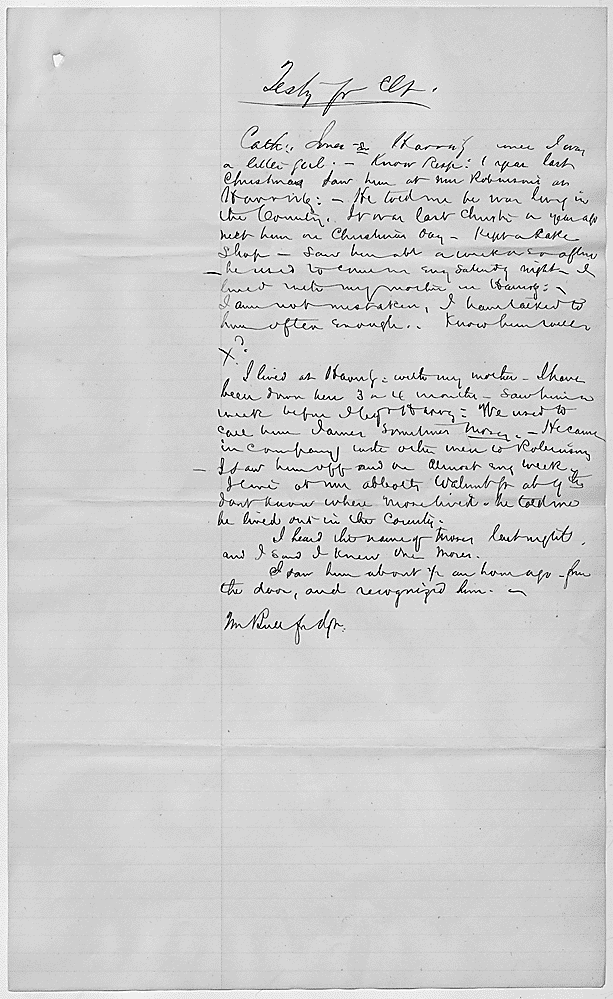 Testy for Clt.
Cath: Jones - Harrisbg since I was
a little girl. - Know Resp: 1 year last
Christmas saw him at Mr Robinson's in
Harrisbg: - He told me he was living in
the Country. It was last Christs a year ago
met him on Christmas day - Kept a Cake
Shop - Saw him abt a week or so after
- he used to come in evry Saturdy night - I
lived with my mother in Harrisg: -
I am not mistaken, I have talked to
him often enough.. Know him well
X?
I lived at Harrisbg: with my mother - I have
been down here 3 or 4 months - Saw him a
week before I left Harrisg: We used to
call him James sometimes Moses. - He came
in company with other men to Robinsons
- I saw him off and on almost evry week.
I live at Mr abbotts Walnut St ab 9th
dont know where Moses lived - he told me
he lived out in the County.
I heard the name of Moses last night,
and I said I knew one Moses.
I saw him about ½ an hour ago - from
the door, and recognized him. -
Mr Bull for dft.